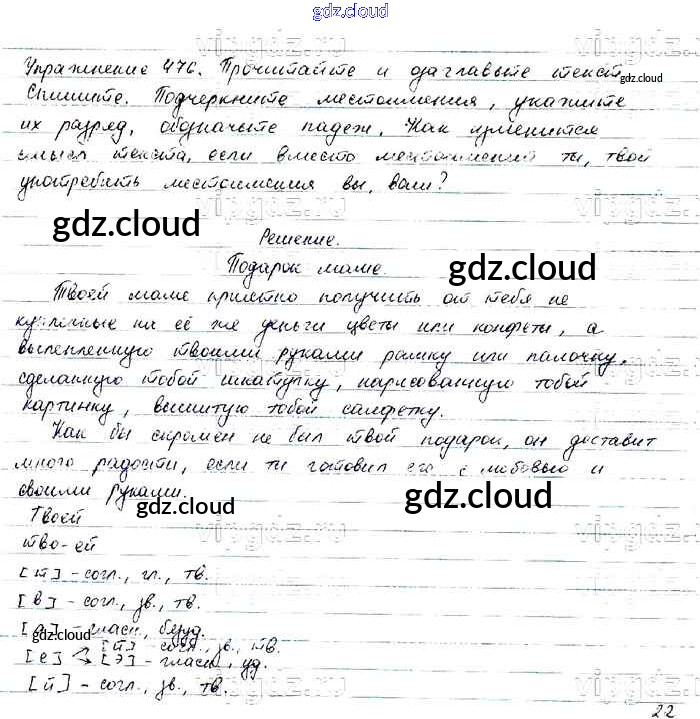 gdz.cloud
Упражнение 476. Прочитайте и озаглавьте текст.
gdz.cloud
Спишите. Подчеркните местоимения, укажите
их разряд, обозначьте падеж. Как изменится
смысл текста, если вместо местоимений ты, твой
употребить местоимения вы, ваш?
gdz.cloud
Решение.
Подарок маме.
gdz.cloud
Твоей маме приятно получить от тебя не
купленные на её же деньги цветы или конфеты, а
выпепленную твоими руками рамку или палочку,
сделанную тобой шкатулку, нарисованную тобой
картинку, вышитую тобой салфетку.
Как бы скромен не был твой подарок, он доставит
много радости, если ты готовил его с любовью и
своими руками.
gdz.cloud
gdz.cloud
Твоей
тво-ей
[т] - согл., гл., тв.
[в] - согл., зв., тв.
[а] - гласн., безуд.
gdz.cloud
[й] - согл., зв., тв.
[е] [э] - гласн., уд.
[й] - согл., зв., тв.
22